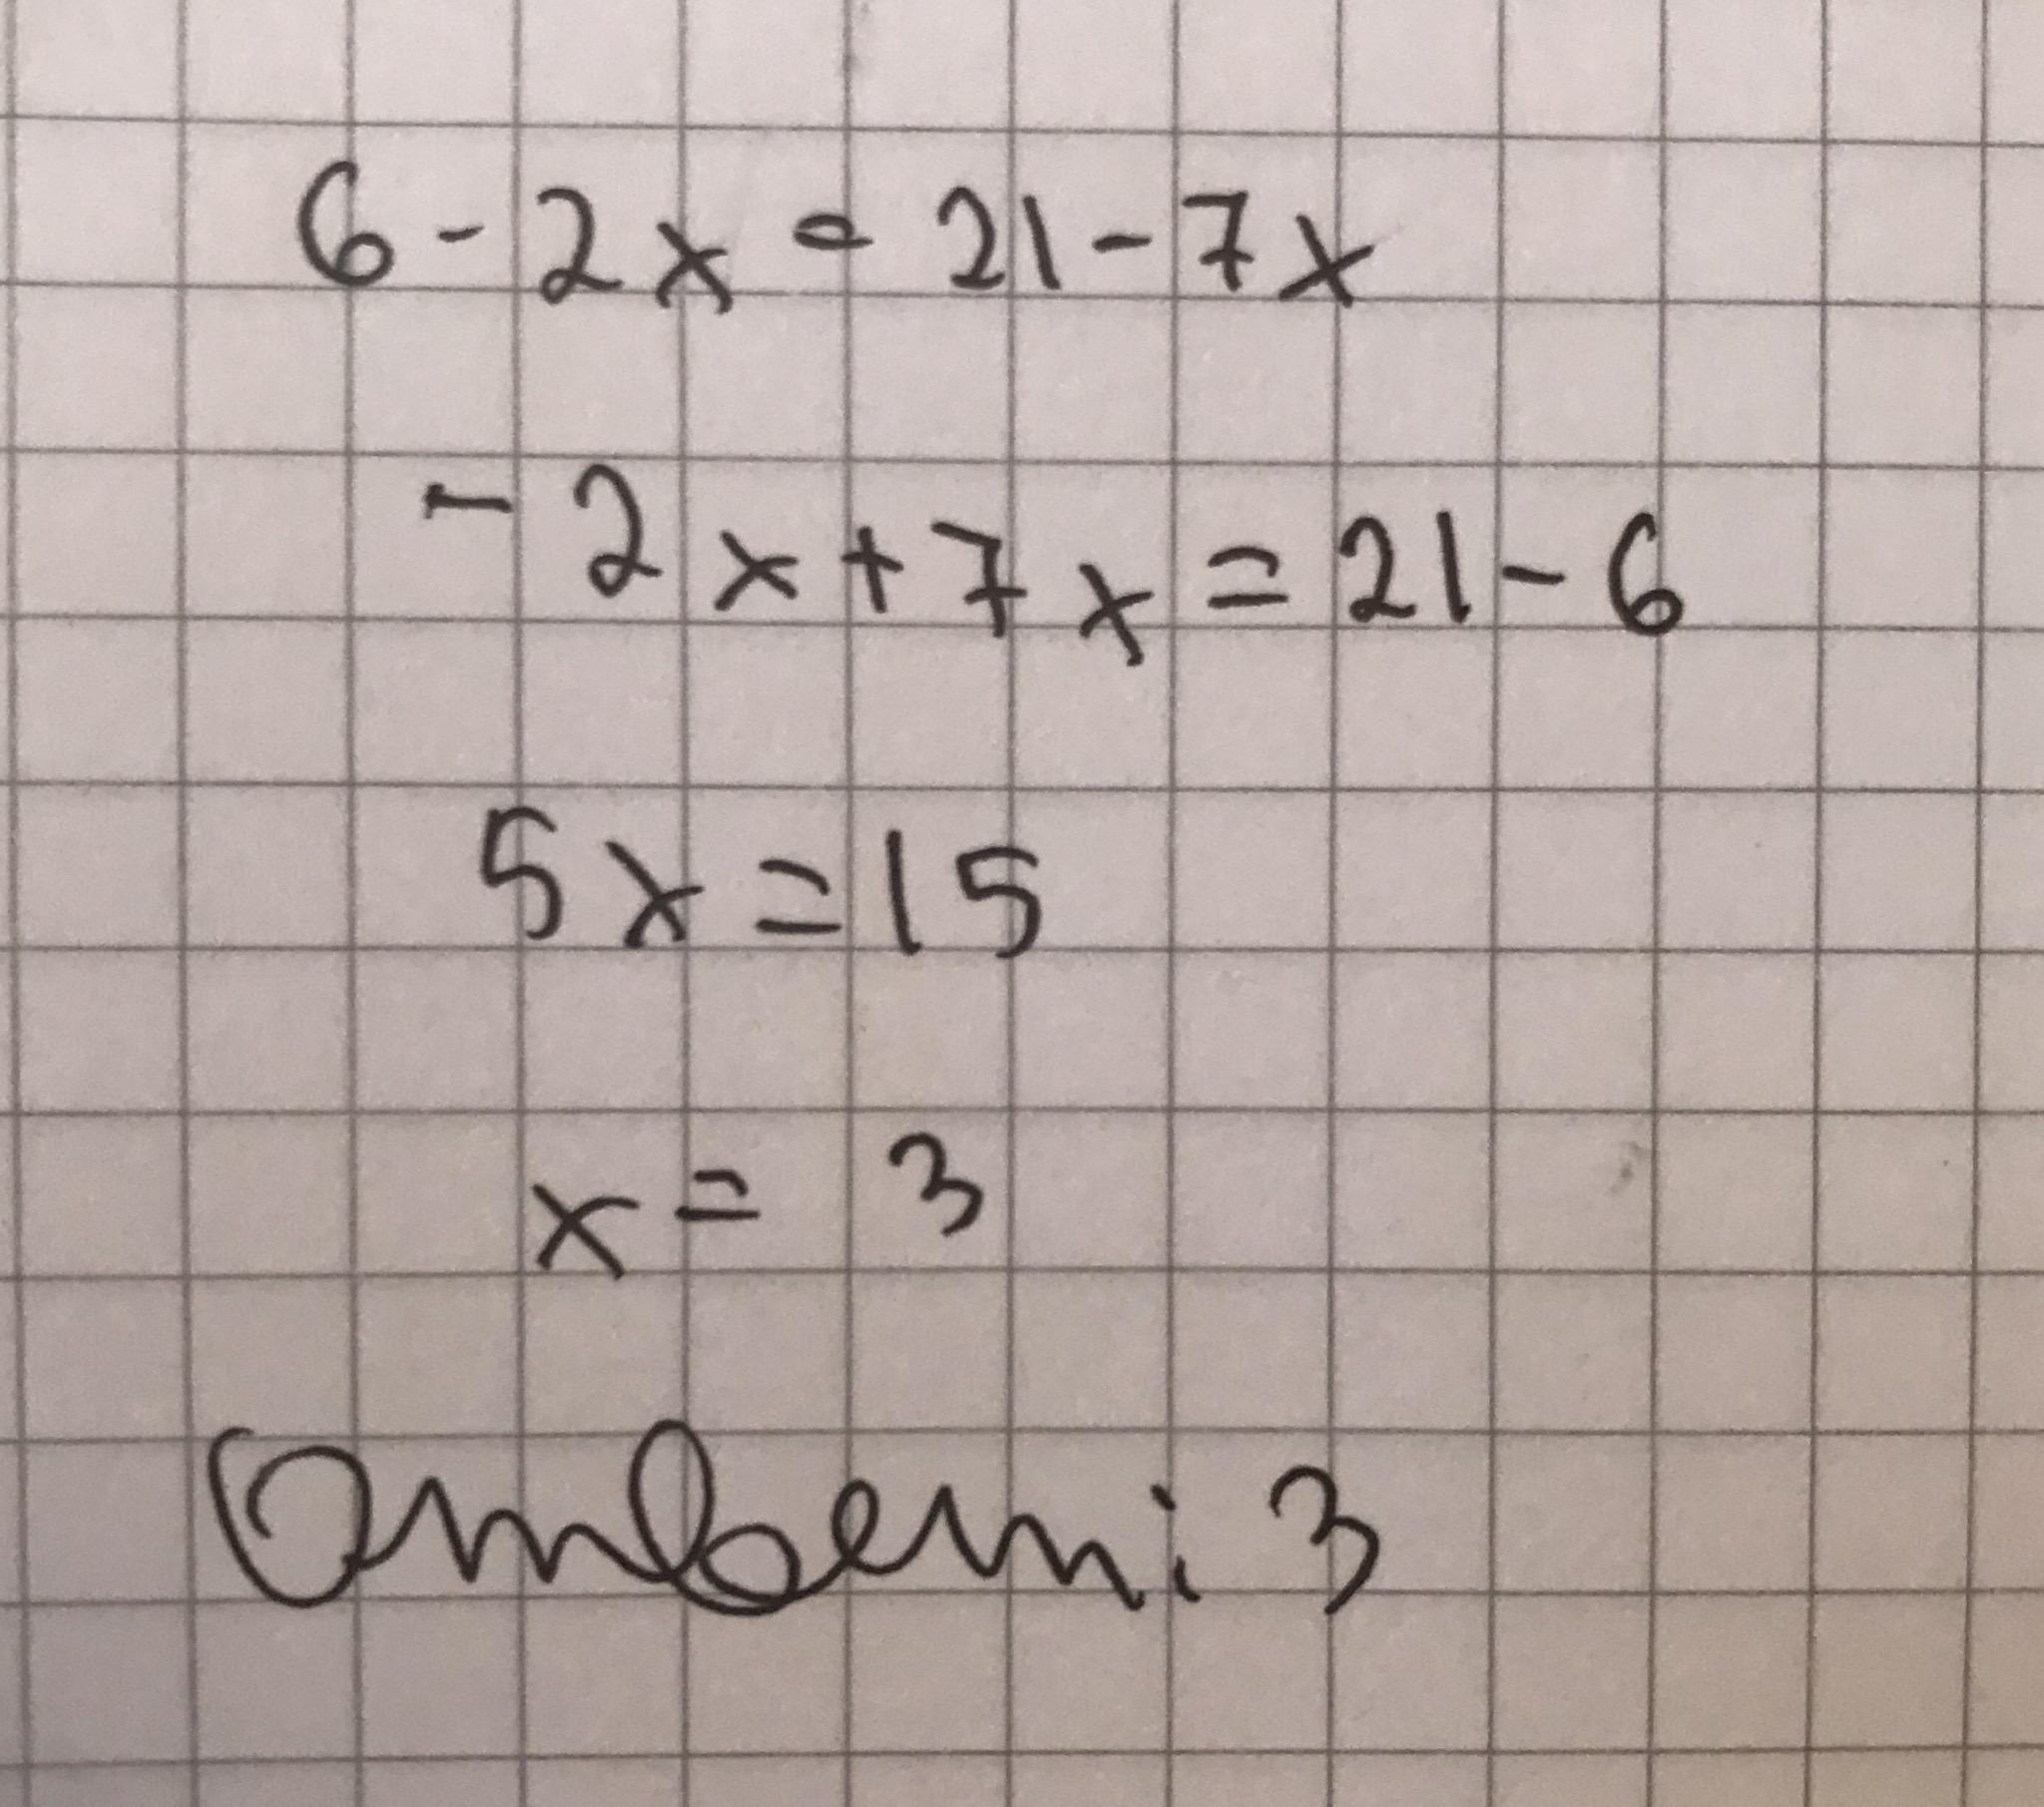 6-2x=21-7x
-2x+7x=21-6
5x=15
x=3
Ответ: 3